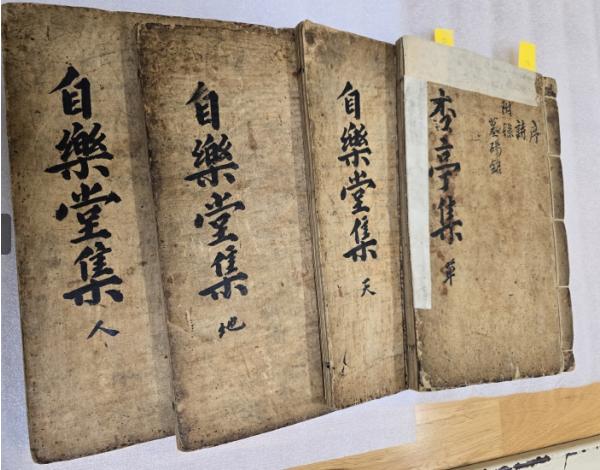 序
詩
附錄
墓碣銘
杏亭集 單
自樂堂集 天
自樂堂集 地
自樂堂集 人